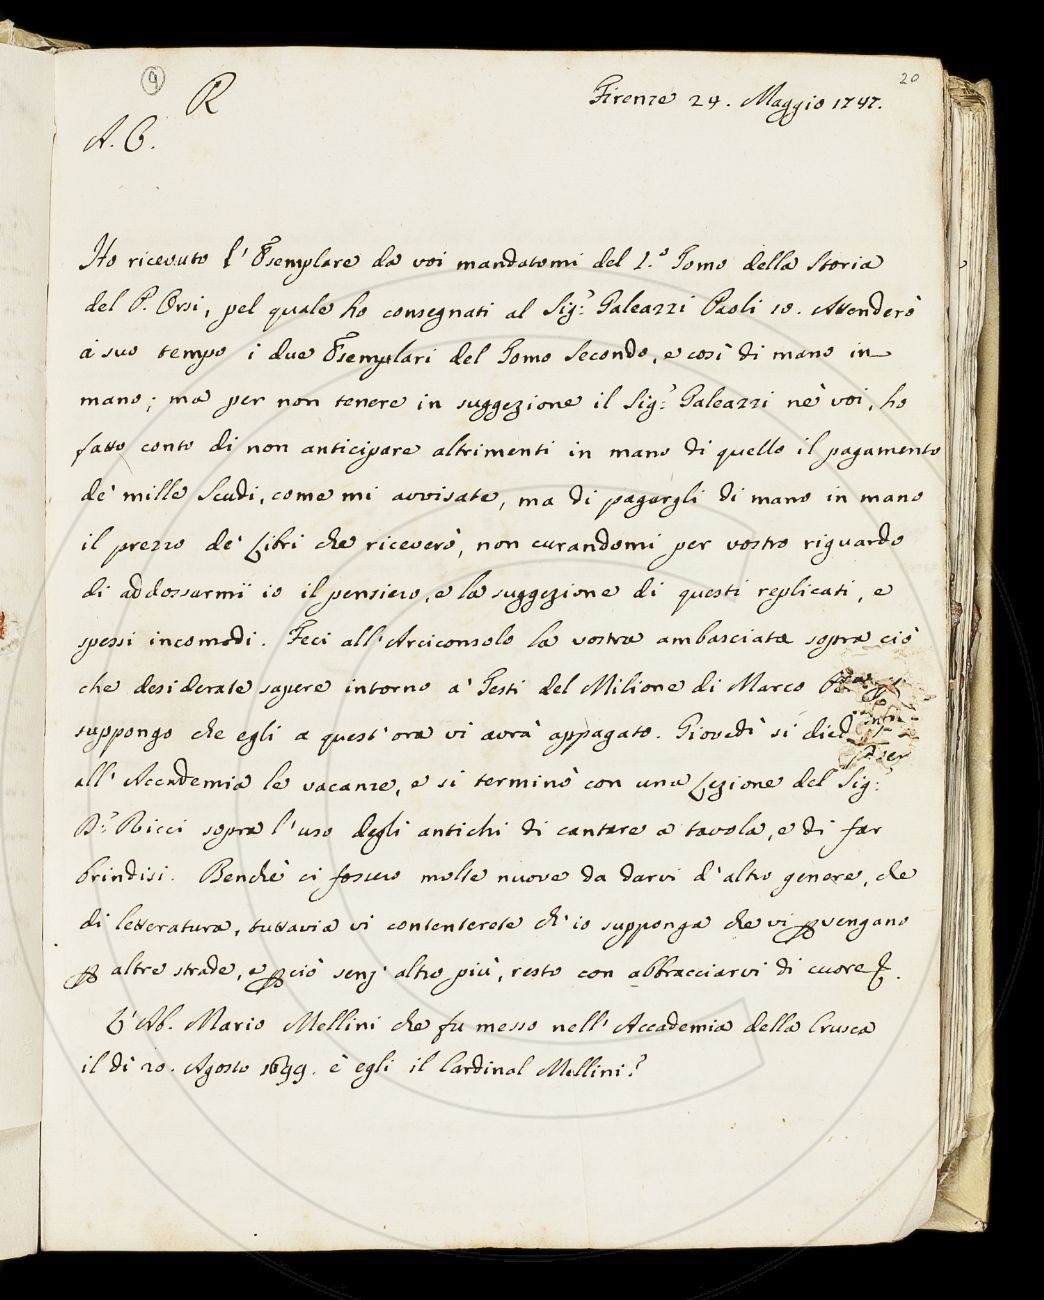 9
20
R
Firenze 24. Maggio 1747.
A. C.
Ho ricevuto l'Esemplare da voi mandatomi del 1.º Tomo della Storia
del P. Orsi, pel quale ho consegnati al Sig.r Galeazzi Paoli 10. Attenderò
a suo tempo i due Esemplari del Tomo Secondo, e così di mano in
mano; ma per non tenere in suggezione il Sig.r Galeazzi nè voi, ho
fatto conto di non anticipare altrimenti in mano di quello il pagamento
de' mille Scudi, come mi avvisate, ma di pagargli di mano in mano
il prezzo de' Libri che riceverò, non curandomi per vostro riguardo
di addossarmi io il pensiero, e la suggezione di questi replicati, e
spessi incomodi. Feci all'Arciconsolo la vostra ambasciata sopra ciò
che desiderate sapere intorno a' Testi del Milione di Marco
suppongo che egli a quest'ora vi avrà appagato. Giovedì si
all'Accademia le vacanze, e si terminò con una Lezione del Sig.r
D.r Ricci sopra l'uso degli antichi di cantare a tavola, e di far
brindisi. Benchè ci fossero molte nuove da darvi d'altro genere, che
di letteratura, tuttavia vi contenterete ch'io supponga che vi vengano
altre strade, e ciò senz'altro più, resto con abbracciarvi di cuore &.
L'Ab. Mario Mellini che fu messo nell'Accademia della Crusca
il dì 20. Agosto 1699. è egli il Cardinal Mellini?